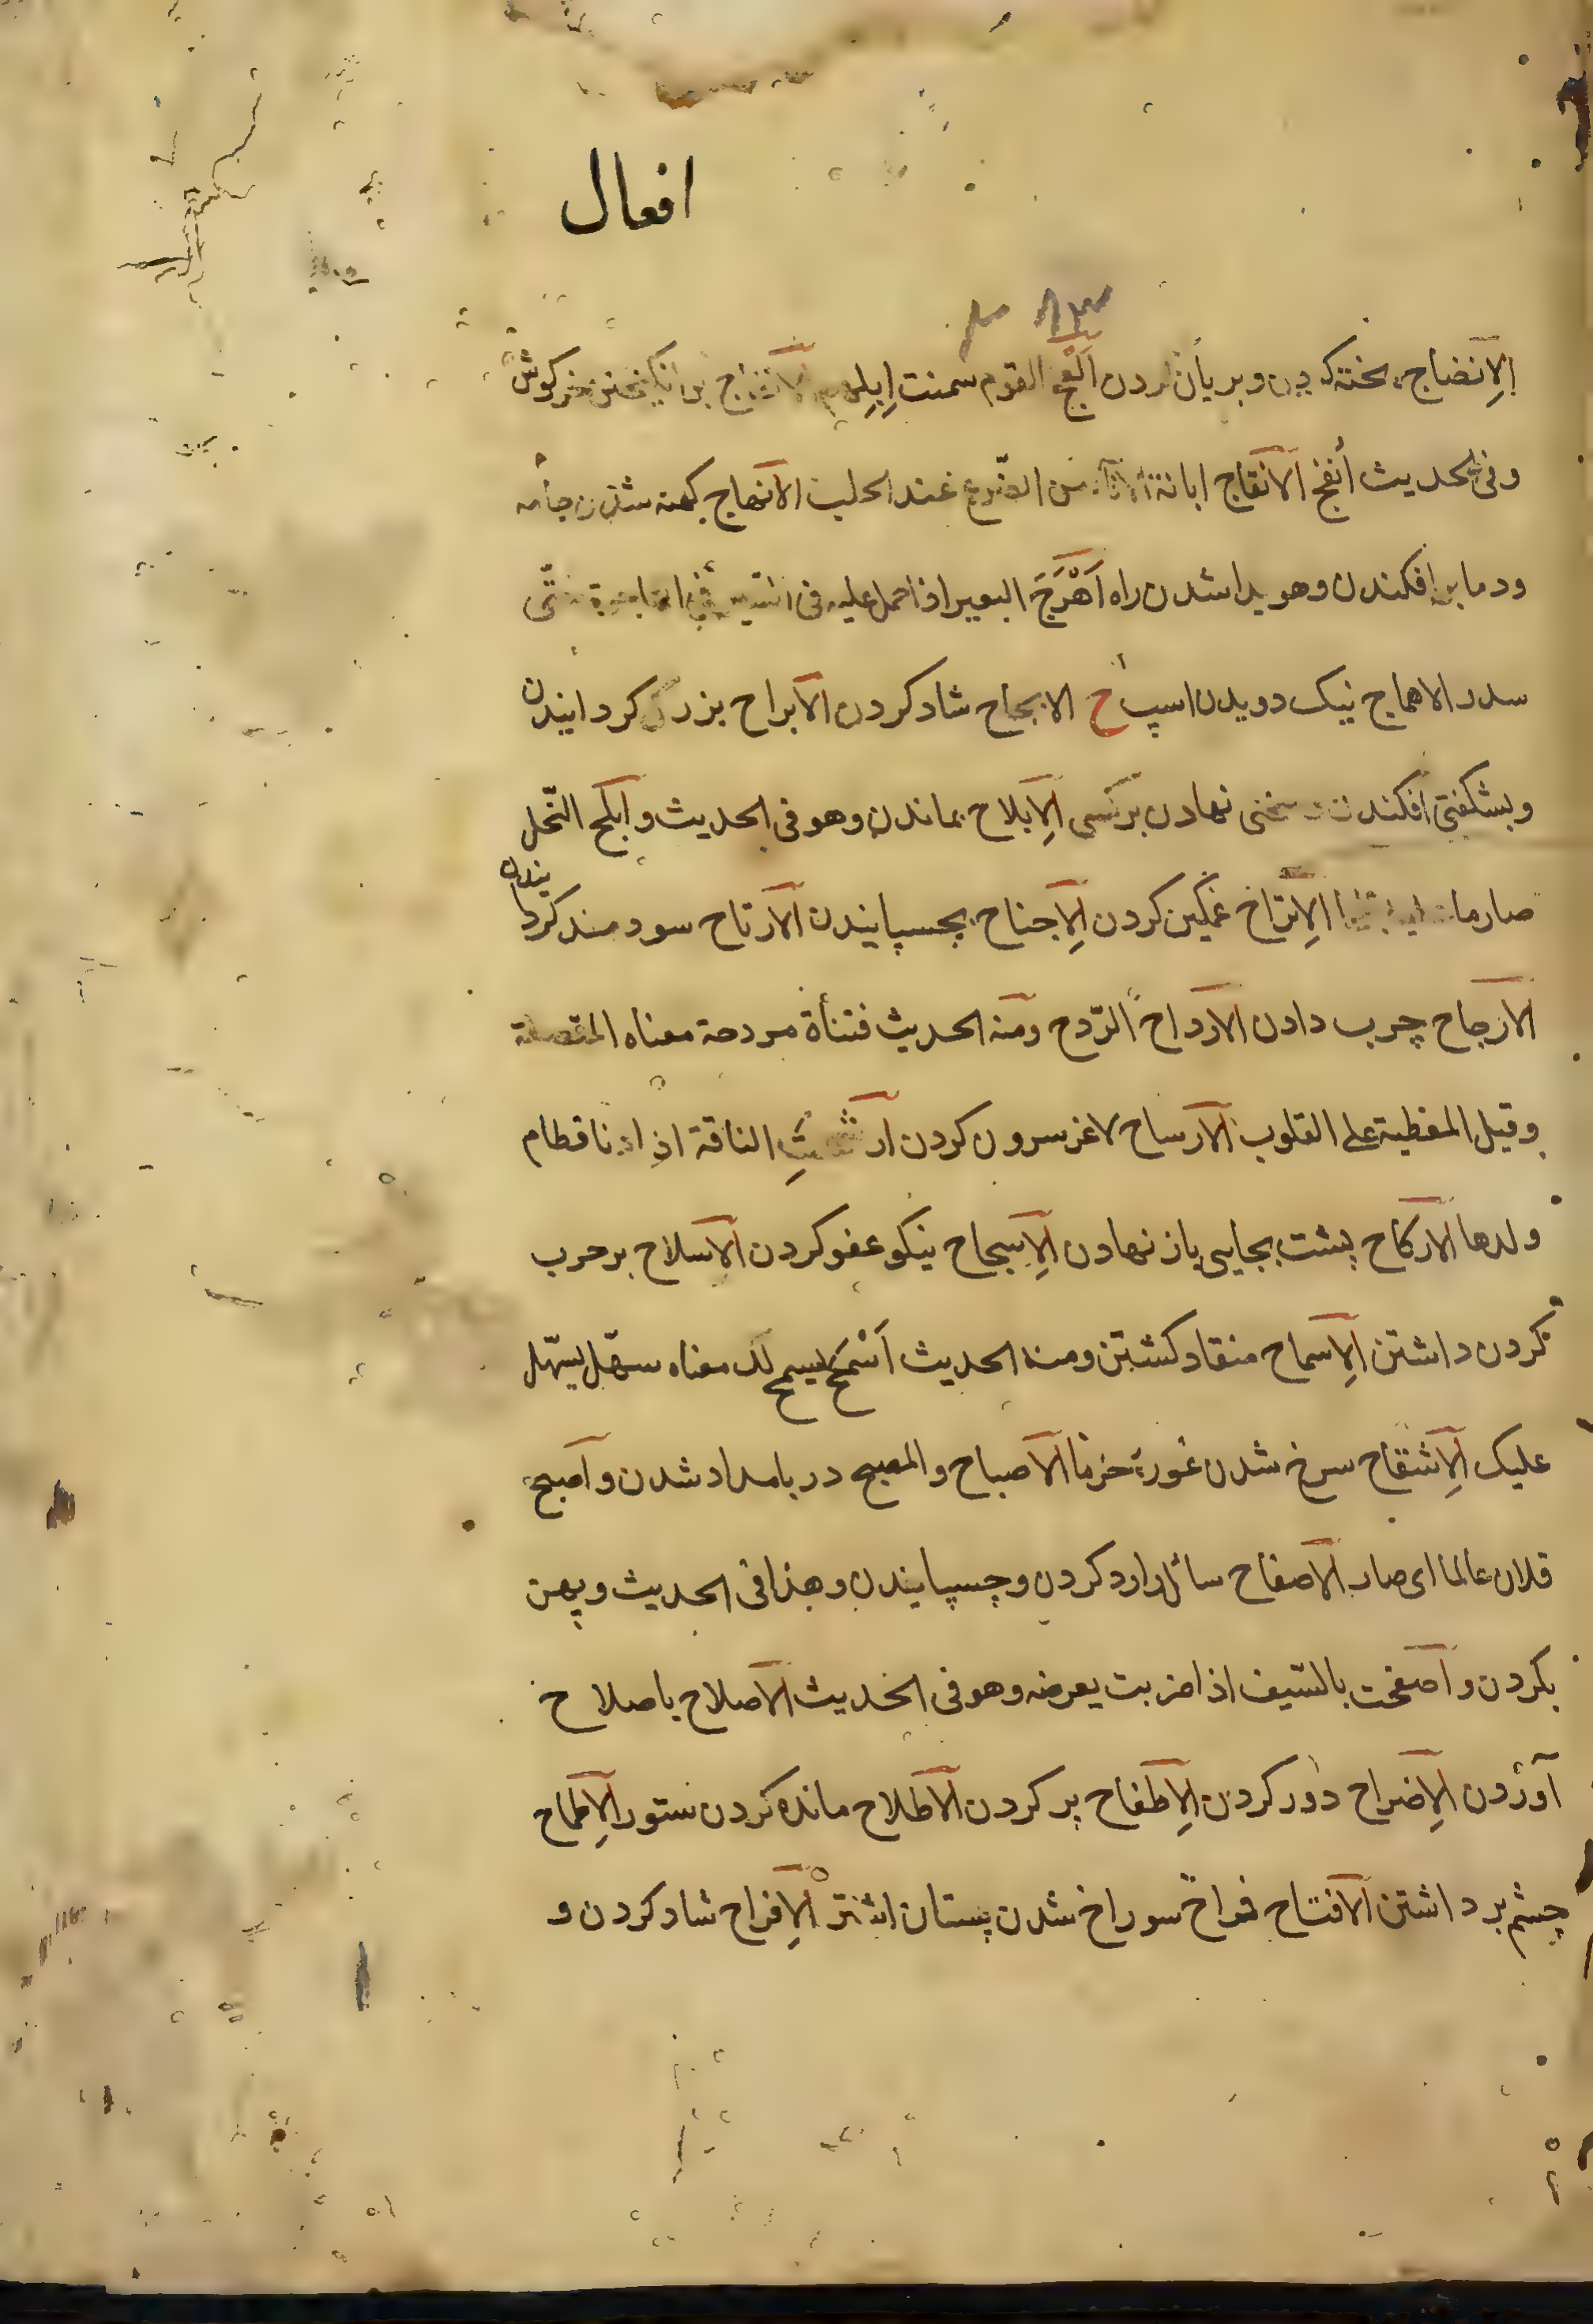 افعال
الاِنضاج پخته کردن و بریان کردن اَنْعَجَ القوم سمنت اِبِلهم الانفاج برانگیختن خرگوش
وفی الحدیث أنفج الانفاج ابانة من الضرع عند الحلب الانهاج کهنه شدن جامه
ودما برافکندن وهویدا شدن راه اَهْرَجَ البعیر اذا حمل علیه فی حتّی
سدر الاهماج نیک دویدن اسپ ح الابجاح شاد کردن الابراح بزرگ گردانیدن
وبشگفتی افکندن و سختی نهادن برکسی الاِبلاح بماندن وهو فی الحدیث وابلح النّخل
صار ما الاِتراح غمگین کردن الاِجناح بچسپانیدن الارباح سودمند گردانیدن
الارجاح چرب دادن الارداح الرّدح ومنه الحدیث فتنأة مردحة معناه المثقلة
وقیل المغطیة علی القلوب الارساح لاغر سرون کردن ارشحتِ الناقة اذا دنا فطام
ولدها الارکاح پشت بجایی باز نهادن الاِسجاح نیکو عفو کردن الاسلاح بر حرب
کردن داشتن الاِسماح منقاد گشتن ومنه الحدیث اَسْمِحْ یسمح لک معناه سهّل یسهّل
علیک الاِشقاح سرخ شدن غورهٔ خرما الاصباح والمصبح در بامداد شدن واصبح
فلان عالما ای صار الاصفاح سائل را رد کردن وچسپانیدن وهذا فی الحدیث وپهن
بکردن واصفحت بالسّیف اذا ضربت بعرضه وهو فی الحدیث الاصلاح باصلاح
آوردن الاِضراح دور کردن الاِطفاح پر کردن الاطلاح مانده کردن ستور الاِطماح
چشم برداشتن الافتاح فراخ سوراخ شدن پستان اشتر الاِفراح شاد کردن و